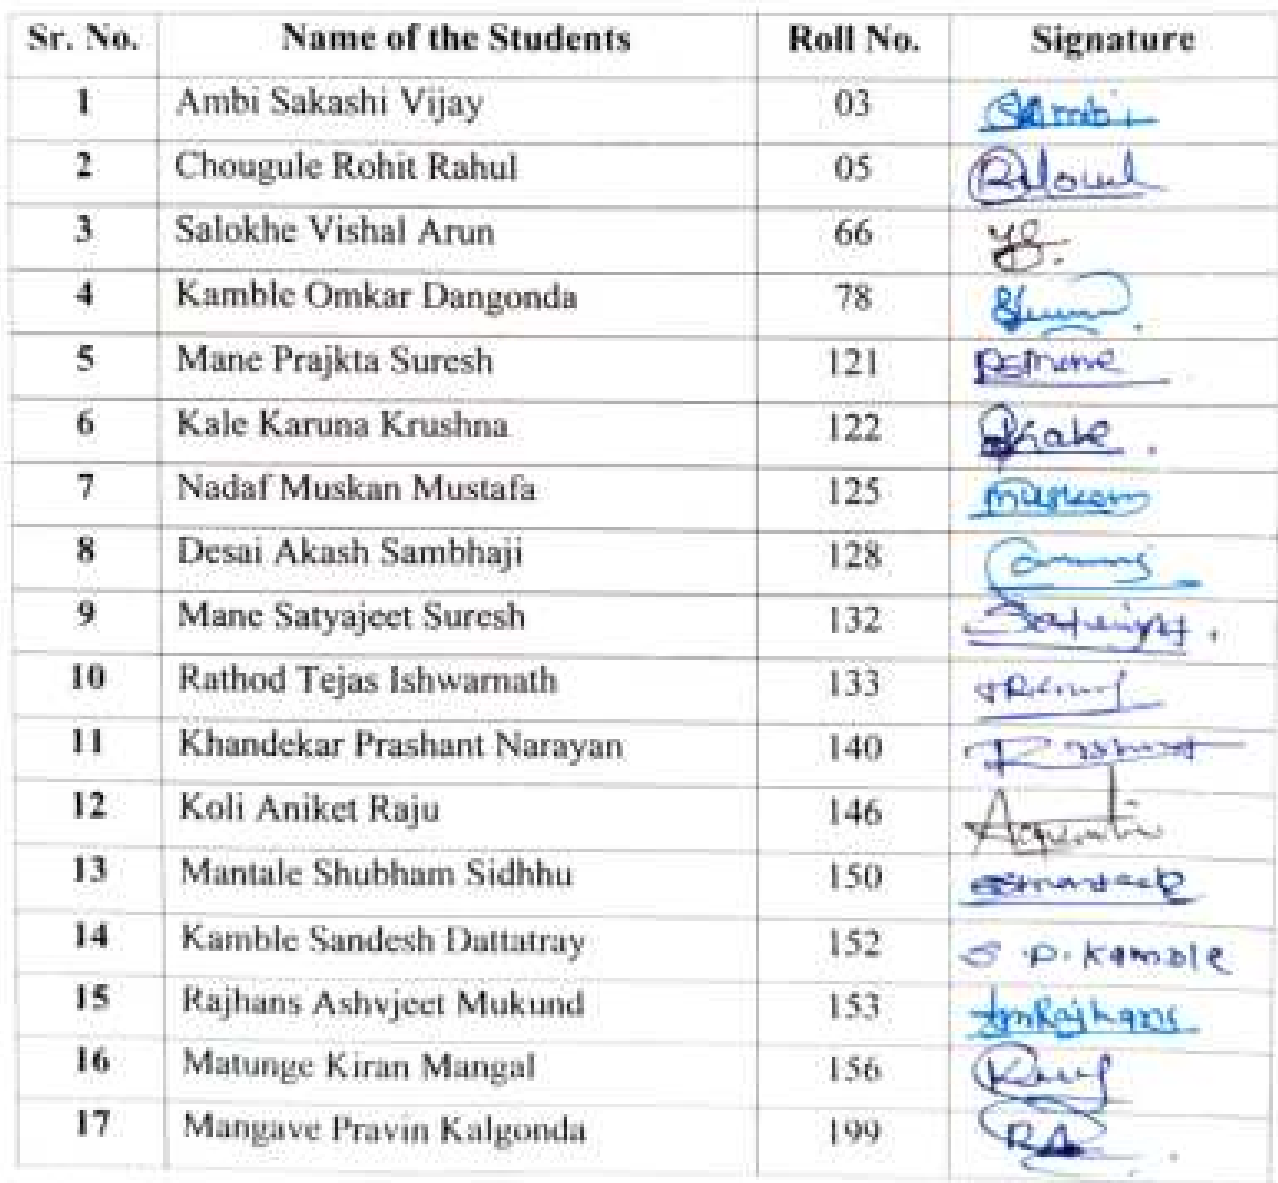 Sr. No. Name of the Students Roll No. Signature
1 Ambi Sakashi Vijay 03
2 Chougule Rohit Rahul 05
3 Salokhe Vishal Arun 66
4 Kamble Omkar Dangonda 78
5 Mane Prajkta Suresh 121
6 Kale Karuna Krushna 122
7 Nadaf Muskan Mustafa 125
8 Desai Akash Sambhaji 128
9 Mane Satyajeet Suresh 132
10 Rathod Tejas Ishwarnath 133
11 Khandekar Prashant Narayan 140
12 Koli Aniket Raju 146
13 Mantale Shubham Sidhhu 150
14 Kamble Sandesh Dattatray 152 S.D.Kamble
15 Rajhans Ashvjeet Mukund 153
16 Matunge Kiran Mangal 156
17 Mangave Pravin Kalgonda 199